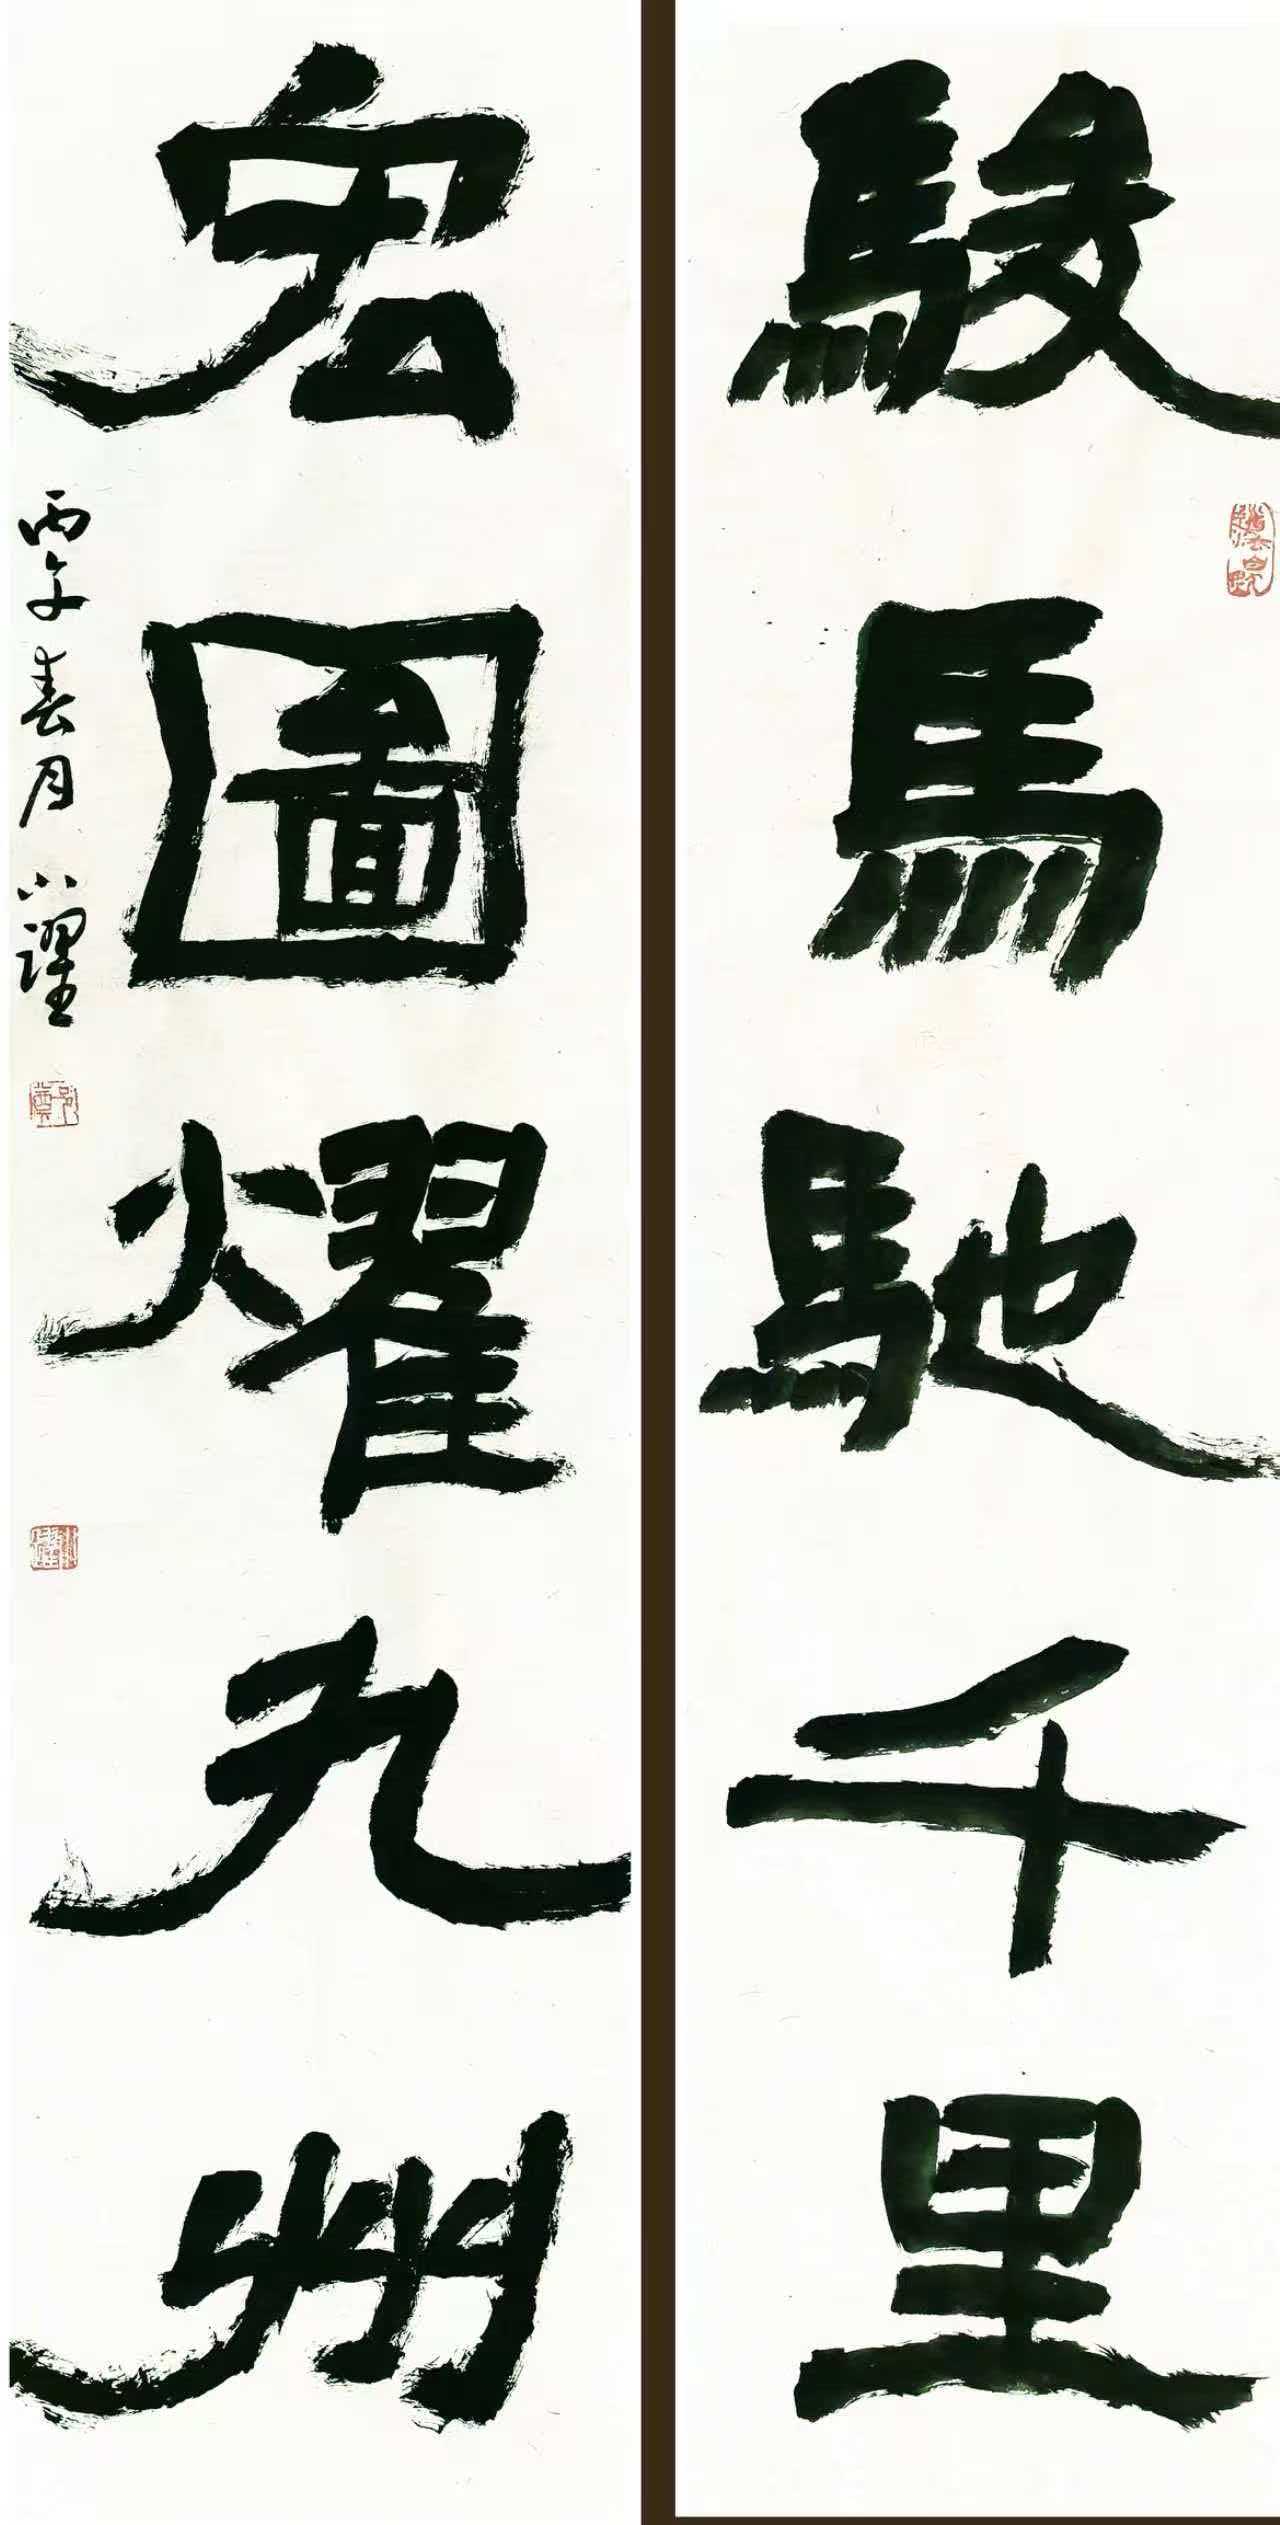 駿馬馳千里
宏圖耀九州
丙午春月小躍